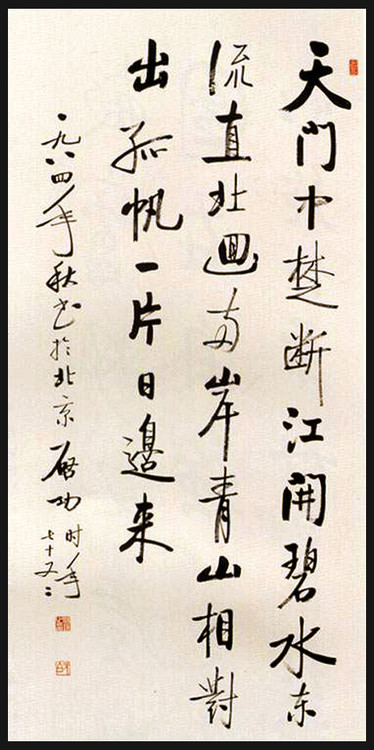 天門中楚断江開碧水东
流直北迴两岸青山相對
出孤帆一片日邉来
一九八四年秋书於北京 啓功
时年
七十又二